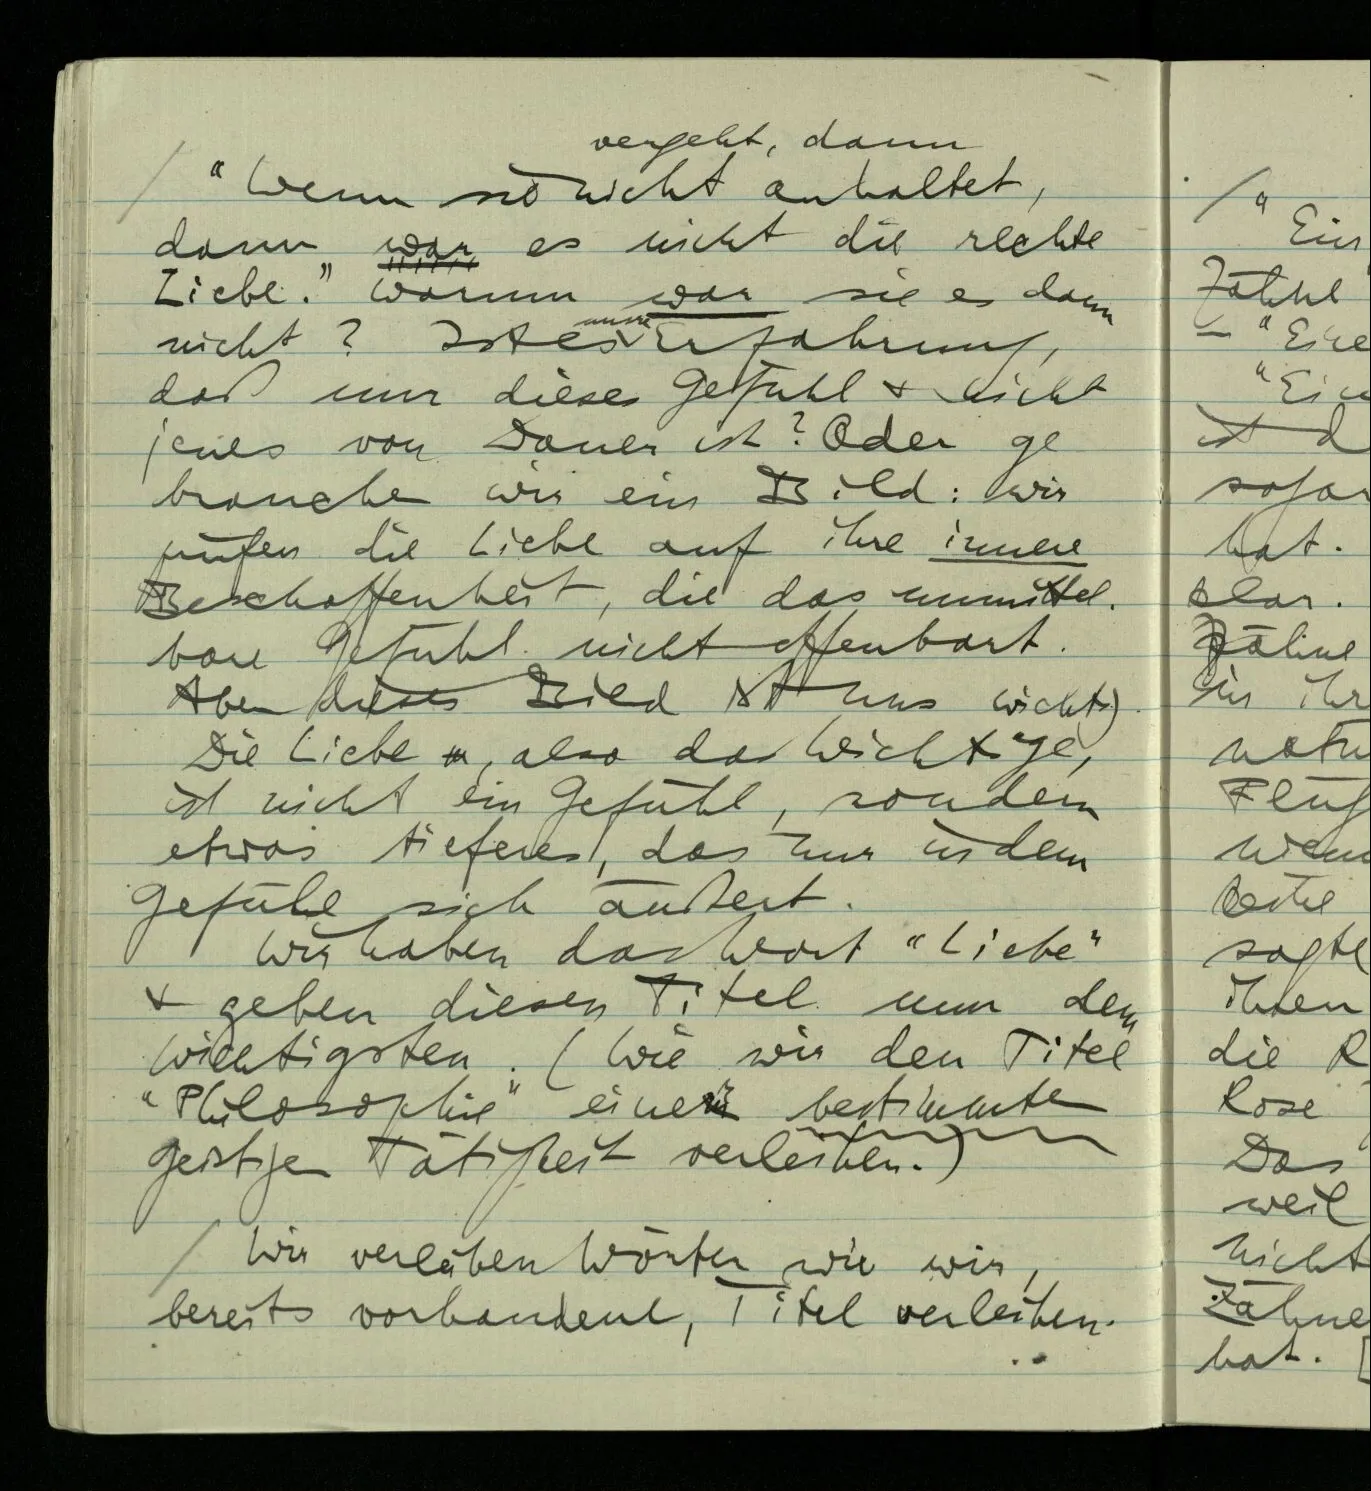 vergeht, dann
/ "Wenn sie nicht anhaltet,
dann war es nicht die rechte
Liebe." Warum war sie es dann
nicht? Ist es unsre Erfahrung,
daß nur dieses Gefühl & nicht
jenes von Dauer ist? Oder ge
brauchen wir ein Bild: wir
prüfen die Liebe auf ihre innere
Beschaffenheit, die das unmittel-
bare Gefühl nicht offenbart.
Aber dieses Bild ist uns wichtig
Die Liebe, also das Wichtige,
ist nicht ein Gefühl, sondern
etwas tieferes, das nur in dem
Gefühl sich äußert.
Wir haben das Wort "Liebe"
& geben diesen Titel nun dem
Wichtigsten. (Wie wir den Titel
"Philosophie" einer bestimmten
geistigen Tätigkeit verleihen.)
/ Wir verleihen Wörter wie wir,
bereits vorhandene, Titel verleihen.
/ " Ein
"Eine
"Ein
hat.
die R
Rose
Das
weil
nicht
Zähne
hat. [